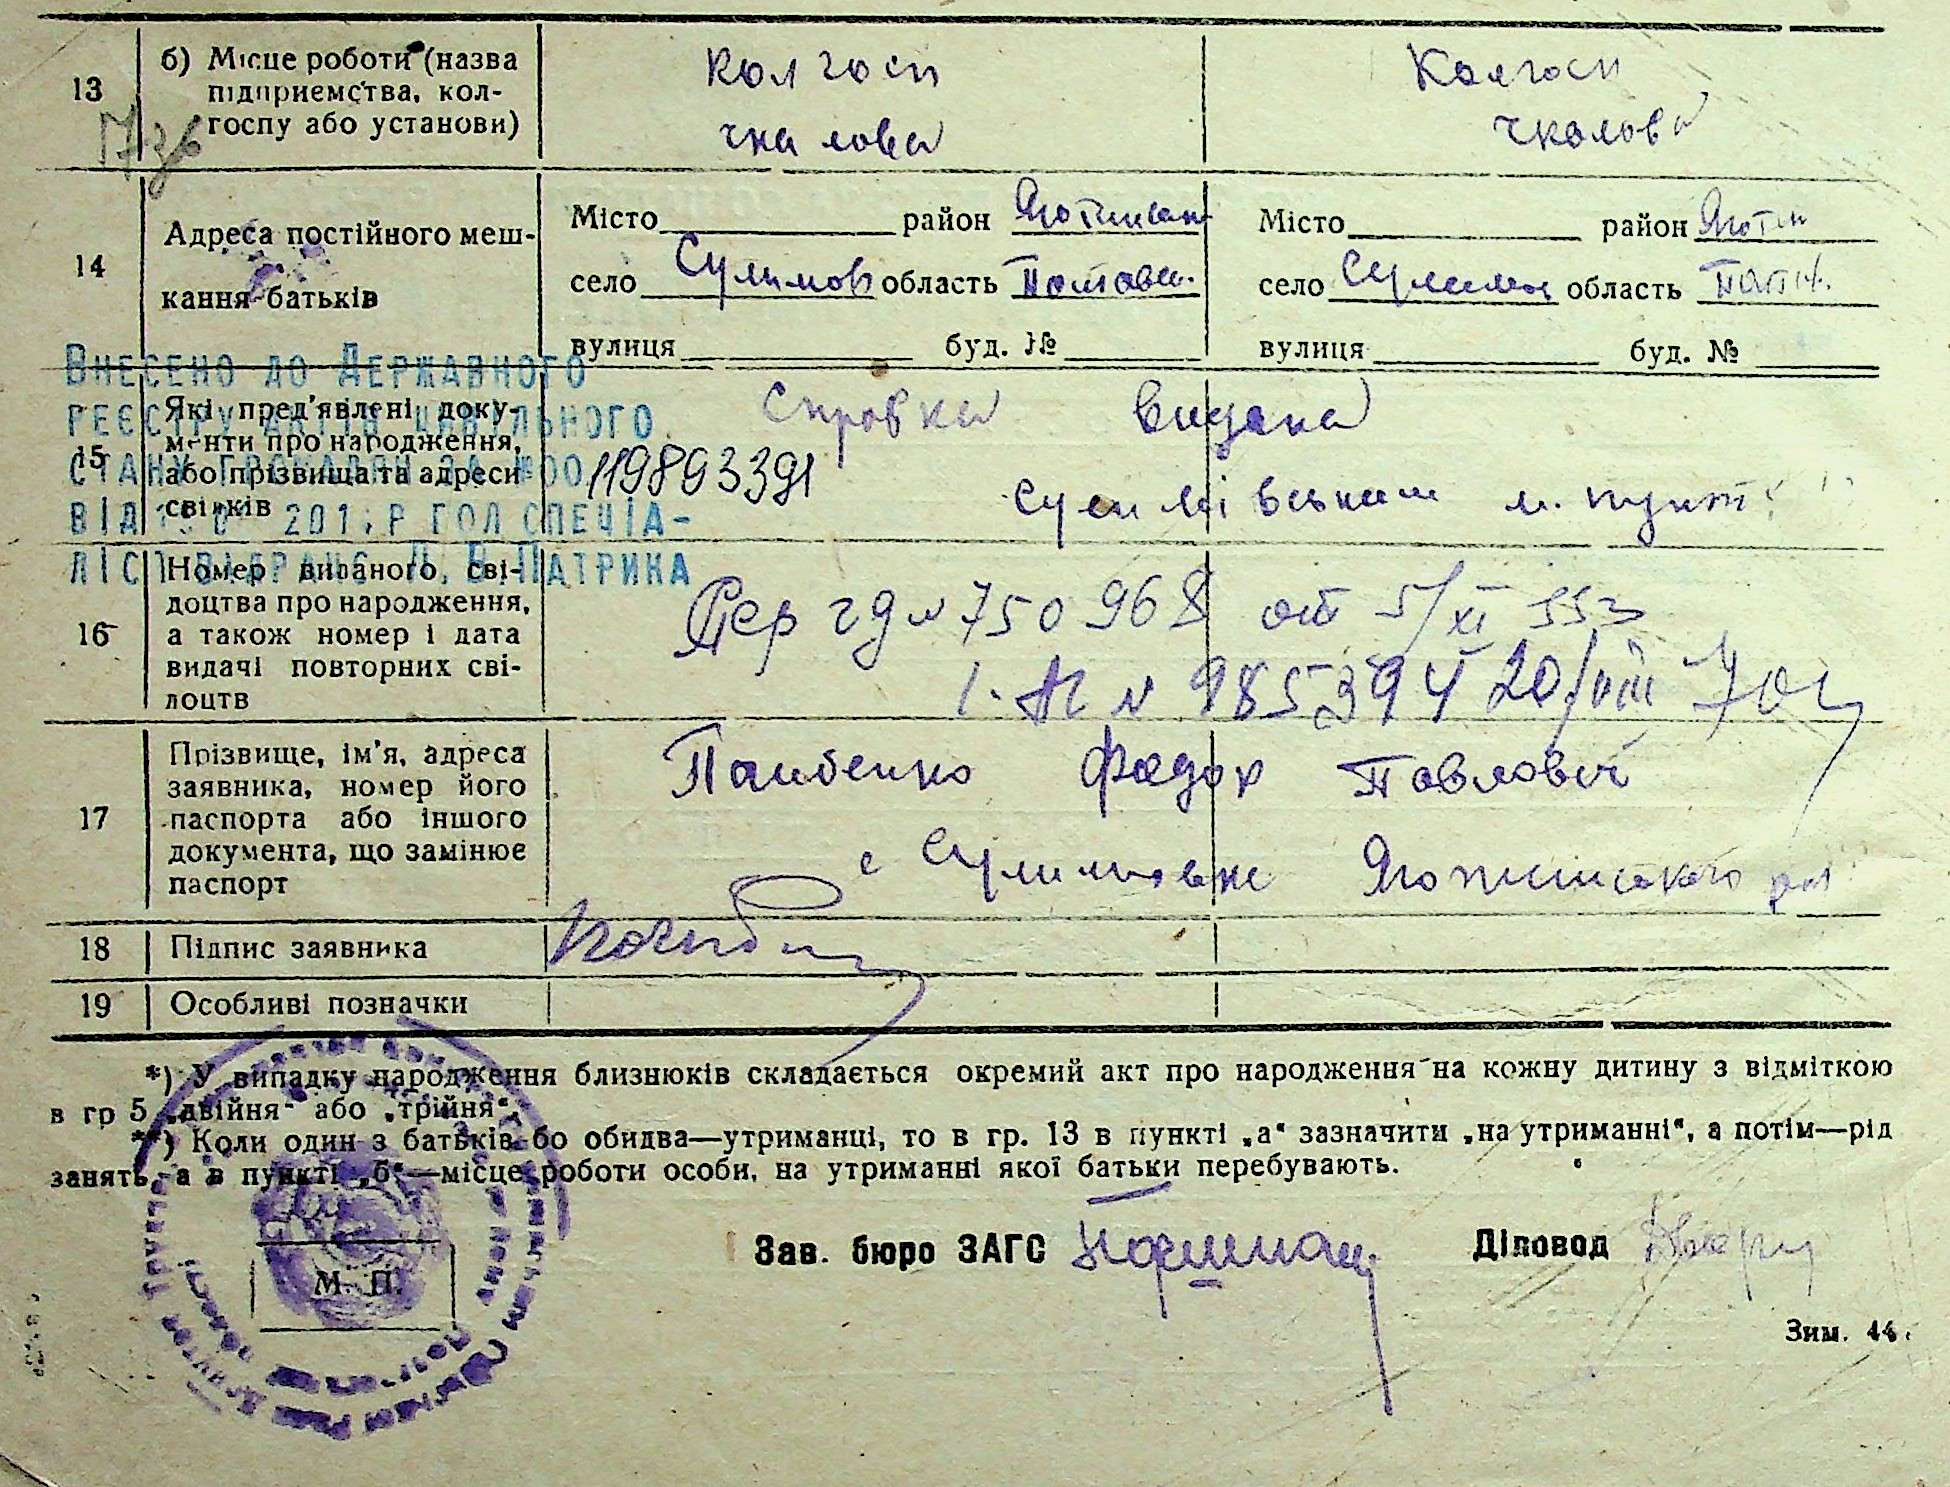 13
б) Місце роботи (назва
підприємства, кол-
госпу або установи)
Колгосп
Чкалова
Колгосп
Чкалова
14
Адреса постійного меш-
кання батьків
Місто район
село Сулимов область Полтавсь.
вулиця буд. №
Місто район Яготин
село область
вулиця буд. №
Внесено до Державного
реєстру актів цивільного
стану громадян за №00119893391
від 201 р гол спеціа-
ліст Патрика
15
Які пред'явлені доку-
менти про народження,
або прізвища та адреси
свідків
Справка видана
Сулимівським м. пункт
16
Номер виданого сві-
доцтва про народження,
а також номер і дата
видачі повторних сві-
доцтв
№ 750968 от 5/XI
№ 985394 20/VIII 70
17
Прізвище, ім'я, адреса
заявника, номер його
паспорта або іншого
документа, що замінює
паспорт
Федор Павлович
с Сулимовка Яготинского
18
Підпис заявника
19
Особливі позначки
*) У випадку народження близнюків складається окремий акт про народження на кожну дитину з відміткою
в гр 5 „двійня“ або „трійня“.
**) Коли один з батьків бо обидва—утриманці, то в гр. 13 в пункті „а“ зазначити „на утриманні“, а потім—рід
занять, а в пункті „б“—місце роботи особи, на утриманні якої батьки перебувають.
М. П.
Зав. бюро ЗАГС
Діловод
Зим. 44